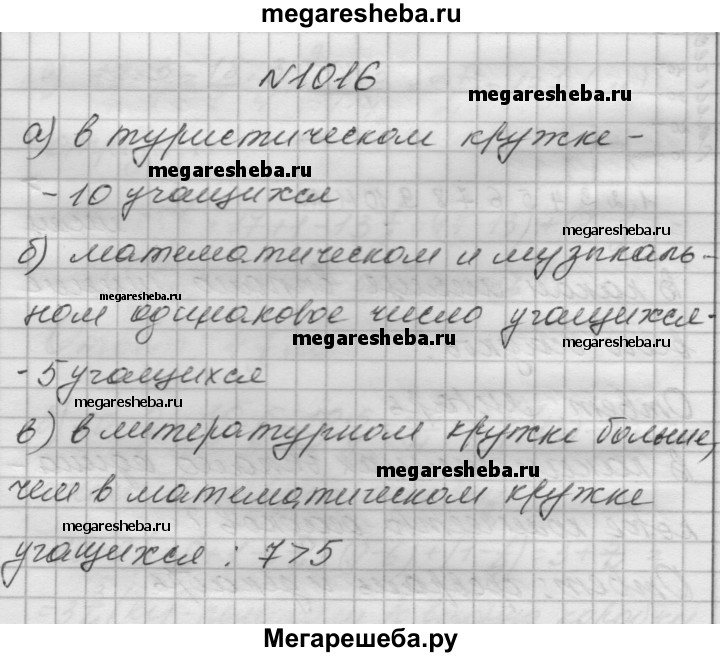 megaresheba.ru
№1016
megaresheba.ru
а) в туристическом кружке -
megaresheba.ru
- 10 учащихся
megaresheba.ru
б) математическом и музыкаль-
megaresheba.ru
ном одинаковое число учащихся-
megaresheba.ru
megaresheba.ru
- 5 учащихся
megaresheba.ru
в) в литературном кружке больше,
megaresheba.ru
чем в математическом кружке
megaresheba.ru
учащихся : 7>5
Мегарешеба.ру